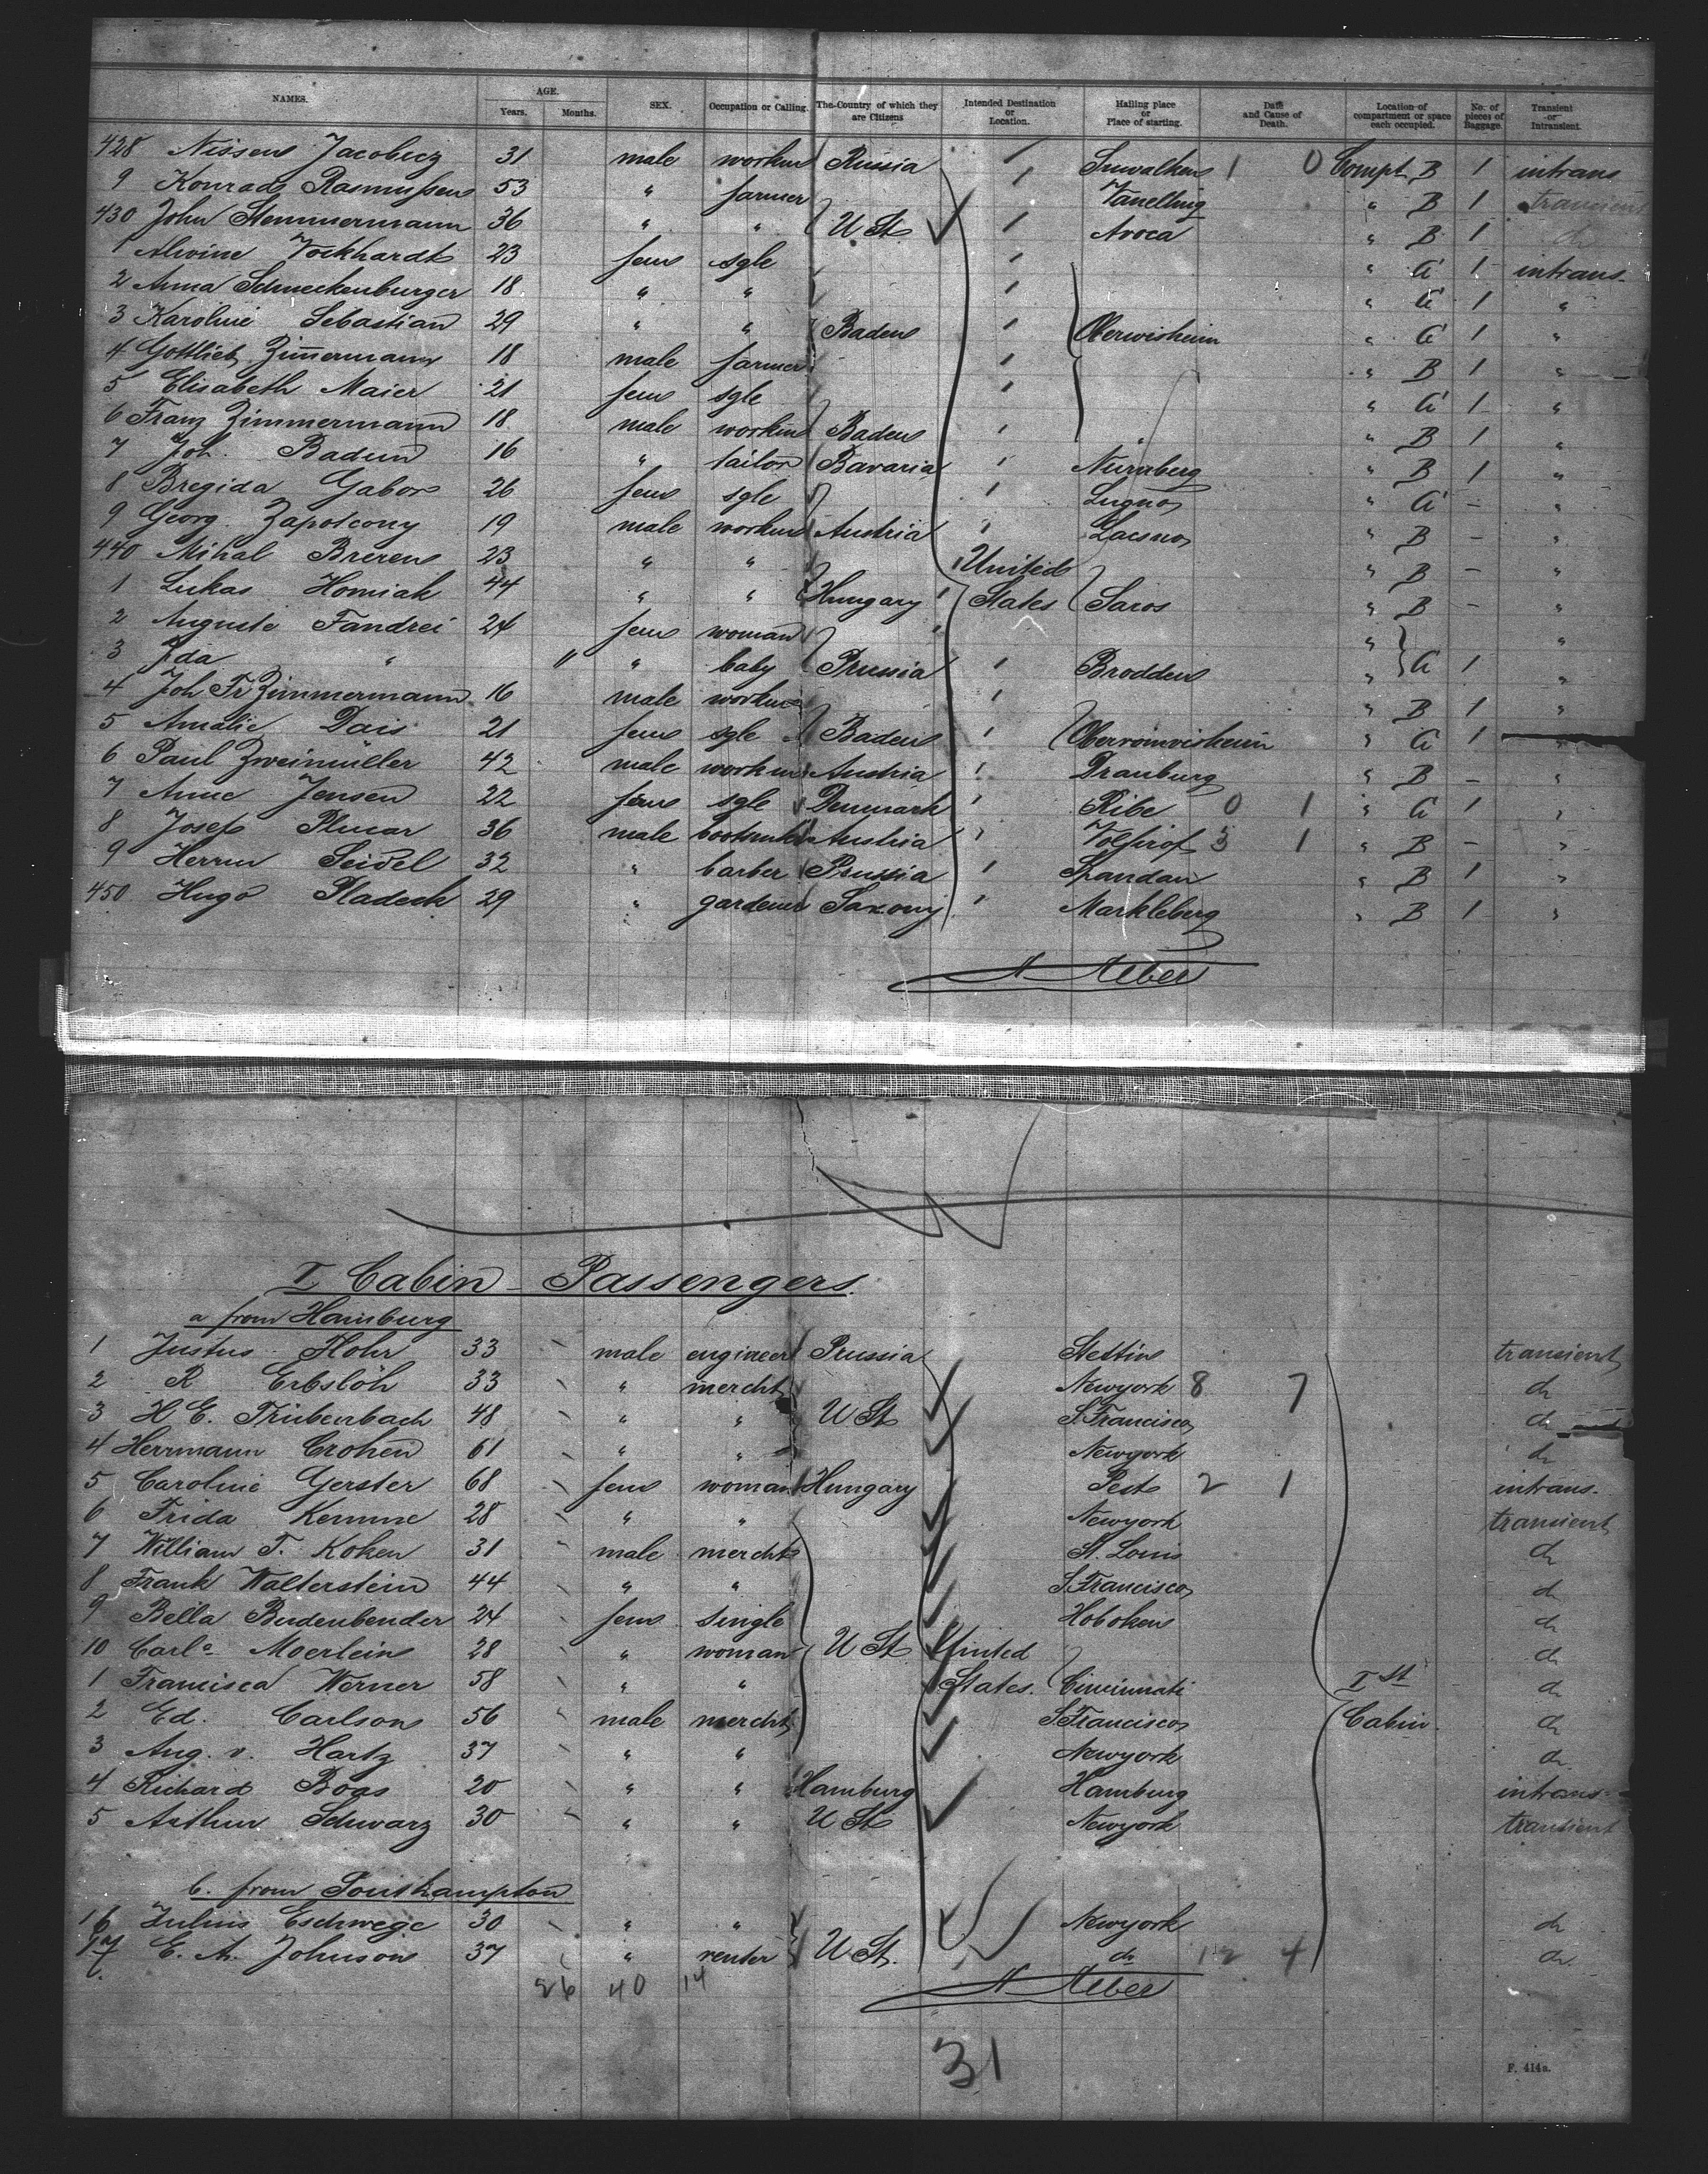 NAMES. AGE. Years. Months. SEX. Occupation or Calling. The Country of which they are Citizens Intended Destination or Location. Hailing place or Place of starting. Date and Cause of Death. Location of compartment or space each occupied. No. of pieces of Baggage. Transient or Intransient.
428 Nissen Jacobicz 31 male workm Russia 1 0 Compt B 1 intrans
9 Konrad Rasmussen 53 " farmer " B 1 transient
430 John Stemmermann 36 " " U St Avoca " B 1 do
1 Alwine Vockhardt 23 fem sgle " A 1 intrans.
2 Anna Schneckenburger 18 " " " A 1 "
3 Karoline Sebastian 29 " " Baden Oberwisheim " A 1 "
4 Gottlieb Zimermann 18 male farmer " B 1 "
5 Elisabeth Maier 21 fem sgle " A 1 "
6 Franz Zimmermann 18 male workm Baden " " B 1 "
7 Joh. Badum 16 " tailor Bavaria Nürnberg " B 1 "
8 Bregida Gabor 26 fem sgle Lugnos " A - "
9 Georg Zapotcony 19 male workm Austria Lacsno " B - "
440 Mihal Breren 23 " " United " B - "
1 Lukas Homiak 44 " " Hungary States Saros " B - "
2 Auguste Fandrei 24 fem woman " "
3 Ida " 11 " baby Prussia Brodden " A 1 "
4 Joh Fr Zimmermann 16 male workm " B 1 "
5 Amalie Dais 21 fem sgle Baden " A 1 "
6 Paul Zweimüller 42 male workm Austria Drauburg " B - "
7 Anne Jensen 22 fem sgle Denmark Ribe 0 1 " A 1 "
8 Josef Plucar 36 male Austria 3 1 " B - "
9 Herrm Seidel 32 " barber Prussia Spandau " B 1 "
450 Hugo Pladeck 29 " gardener Saxony Markleberg " B 1 "
H Alber
I Cabin - Passengers.
a from Hamburg
1 Justus Flohr 33 male engineer Prussia Stettin transient
2 R Erbslöh 33 " mercht Newyork 8 7 do
3 H E. Triebenbach 48 " " U St S. Francisco do
4 Herrmann Crohen 61 " " Newyork do
5 Caroline Gerster 68 fem woman Hungary Pest 2 1 intrans.
6 Frida Kemme 28 " " Newyork transient
7 William T. Koken 31 male mercht St. Louis do
8 Frank Walterstein 44 " " S. Francisco do
9 Bella Budenbender 24 fem single Hoboken do
10 Carla Moerlein 28 " woman U St United do
1 Francisca Werner 58 " " States. Cincinnati I St do
2 Ed. Carlson 56 male mercht S Francisco Cabin. do
3 Aug. v. Hartz 37 " " Newyork do
4 Richard Boas 20 " " Hamburg Hamburg intrans.
5 Arthur Schwarz 30 " " U St Newyork transient
b. from Southampton
16 Julius Eschwege 30 " " Newyork do
17 E. A. Johnson 37 " renter U St. do 12 4 do.
26 40 14
H Alber
31
F. 414a.